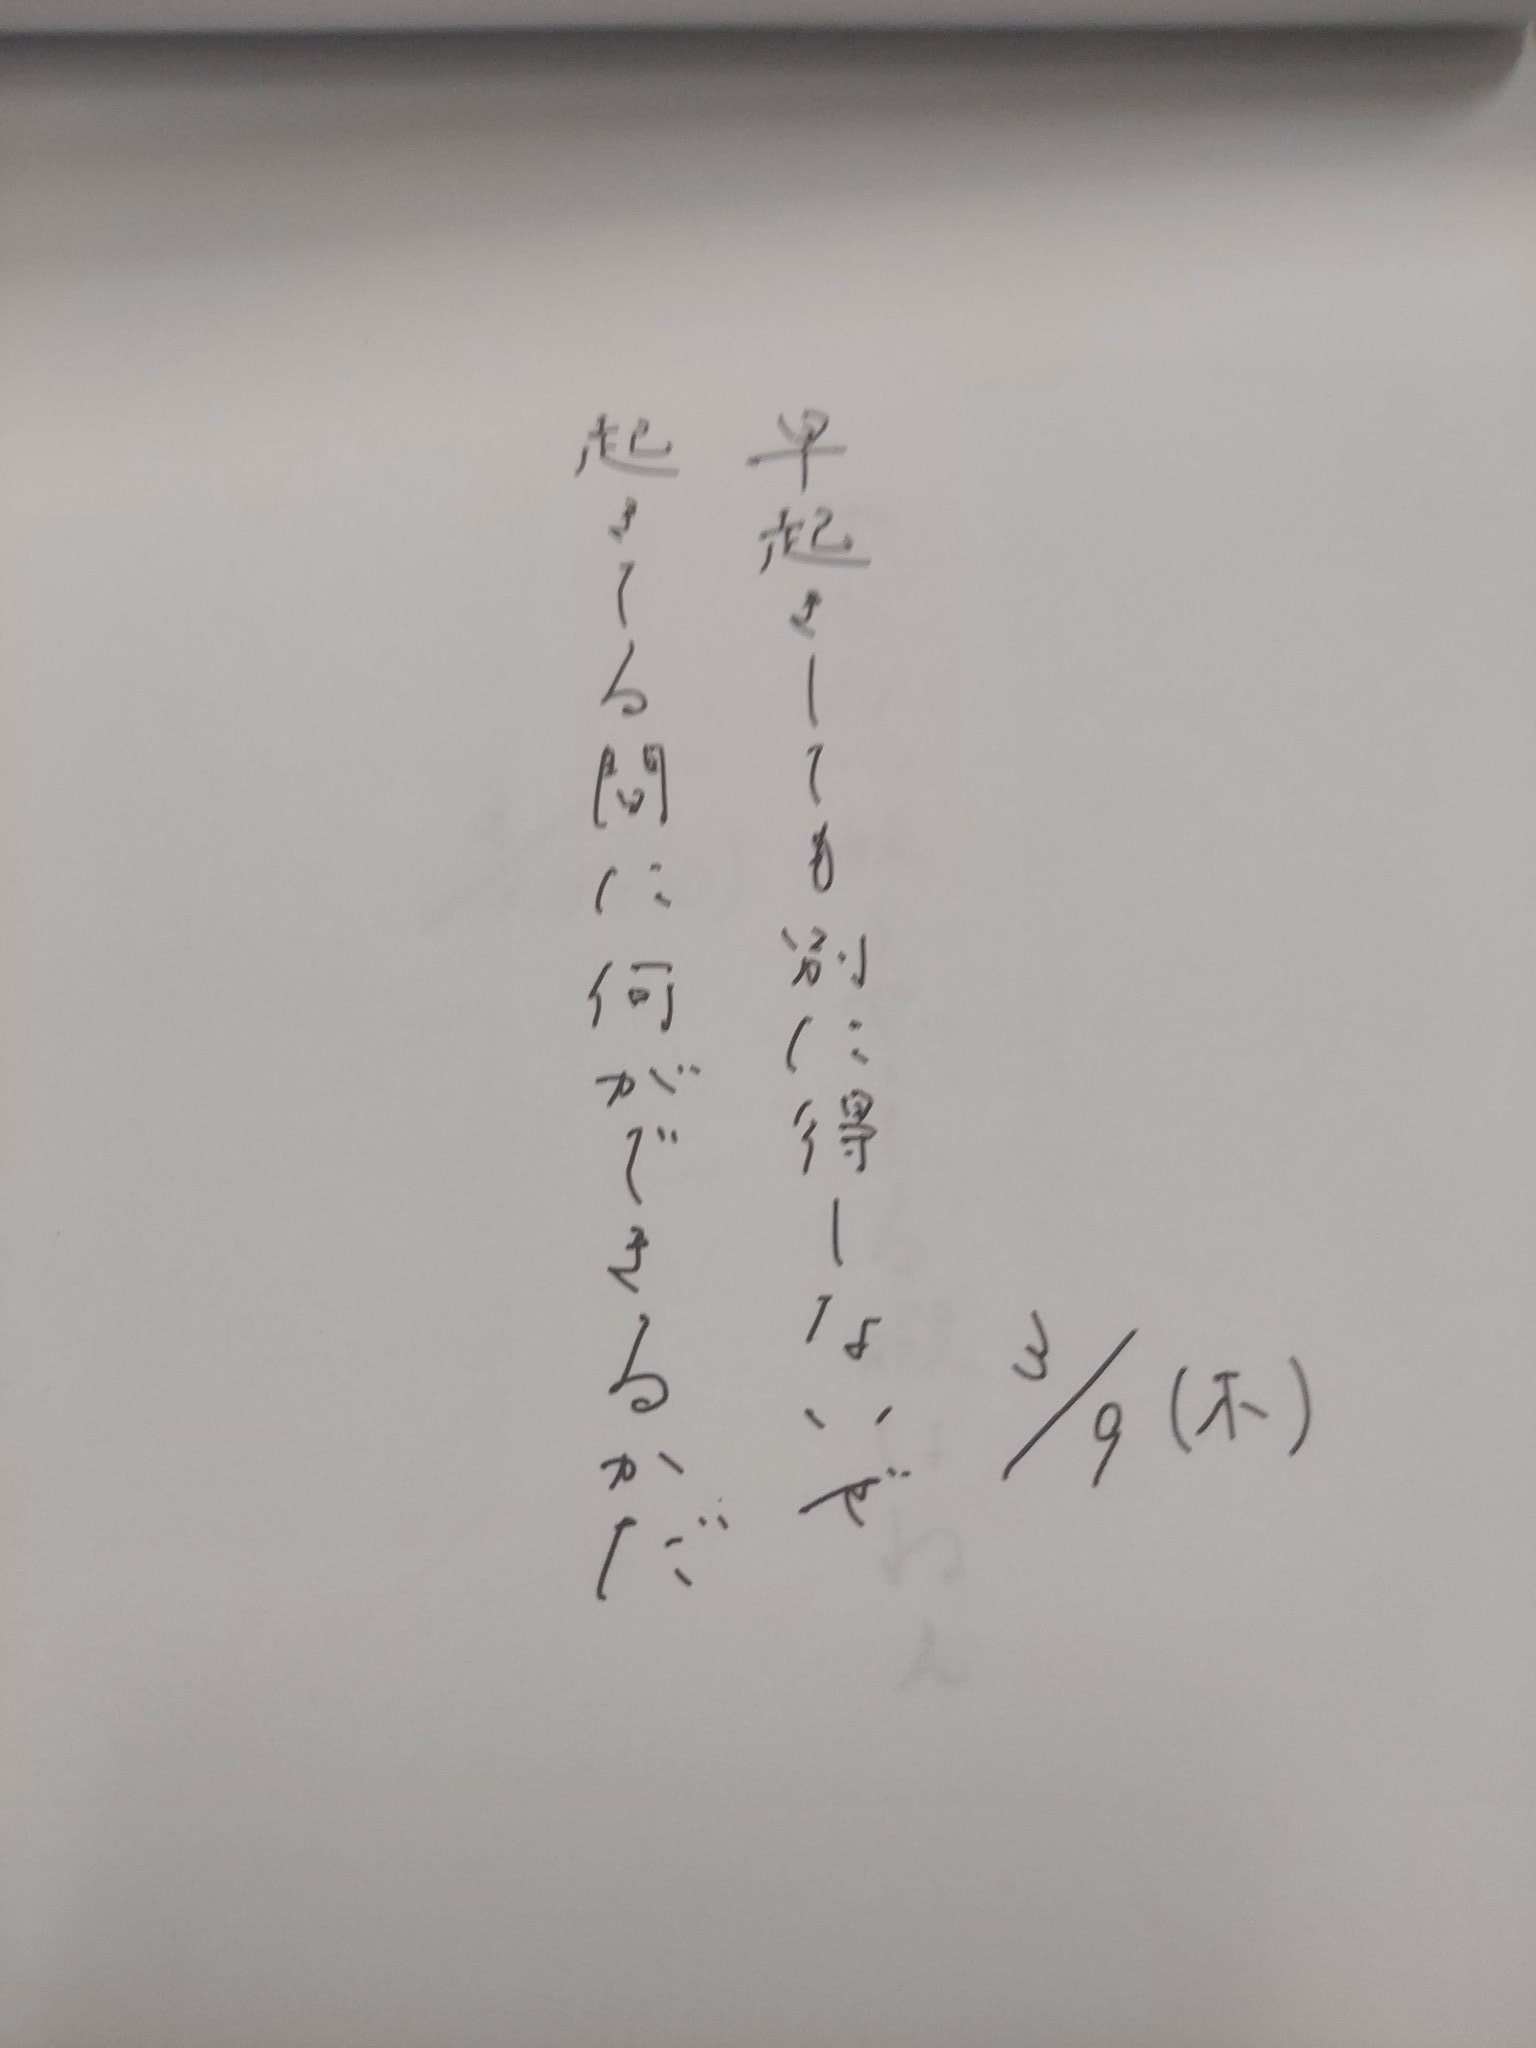 3/9(木)
早起きしても別に得しないぜ
起きてる間に何ができるかだ